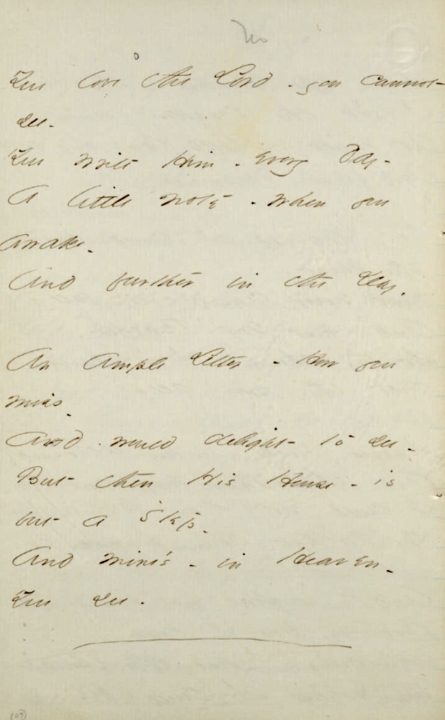 You love the Lord - you cannot
see -
You write Him - every day -
A little note - when you
awake -
And further in the Day,
An Ample Letter - How you
miss -
And would delight to see -
But then His House - is
but a Step -
And mine's - in Heaven -
You see -